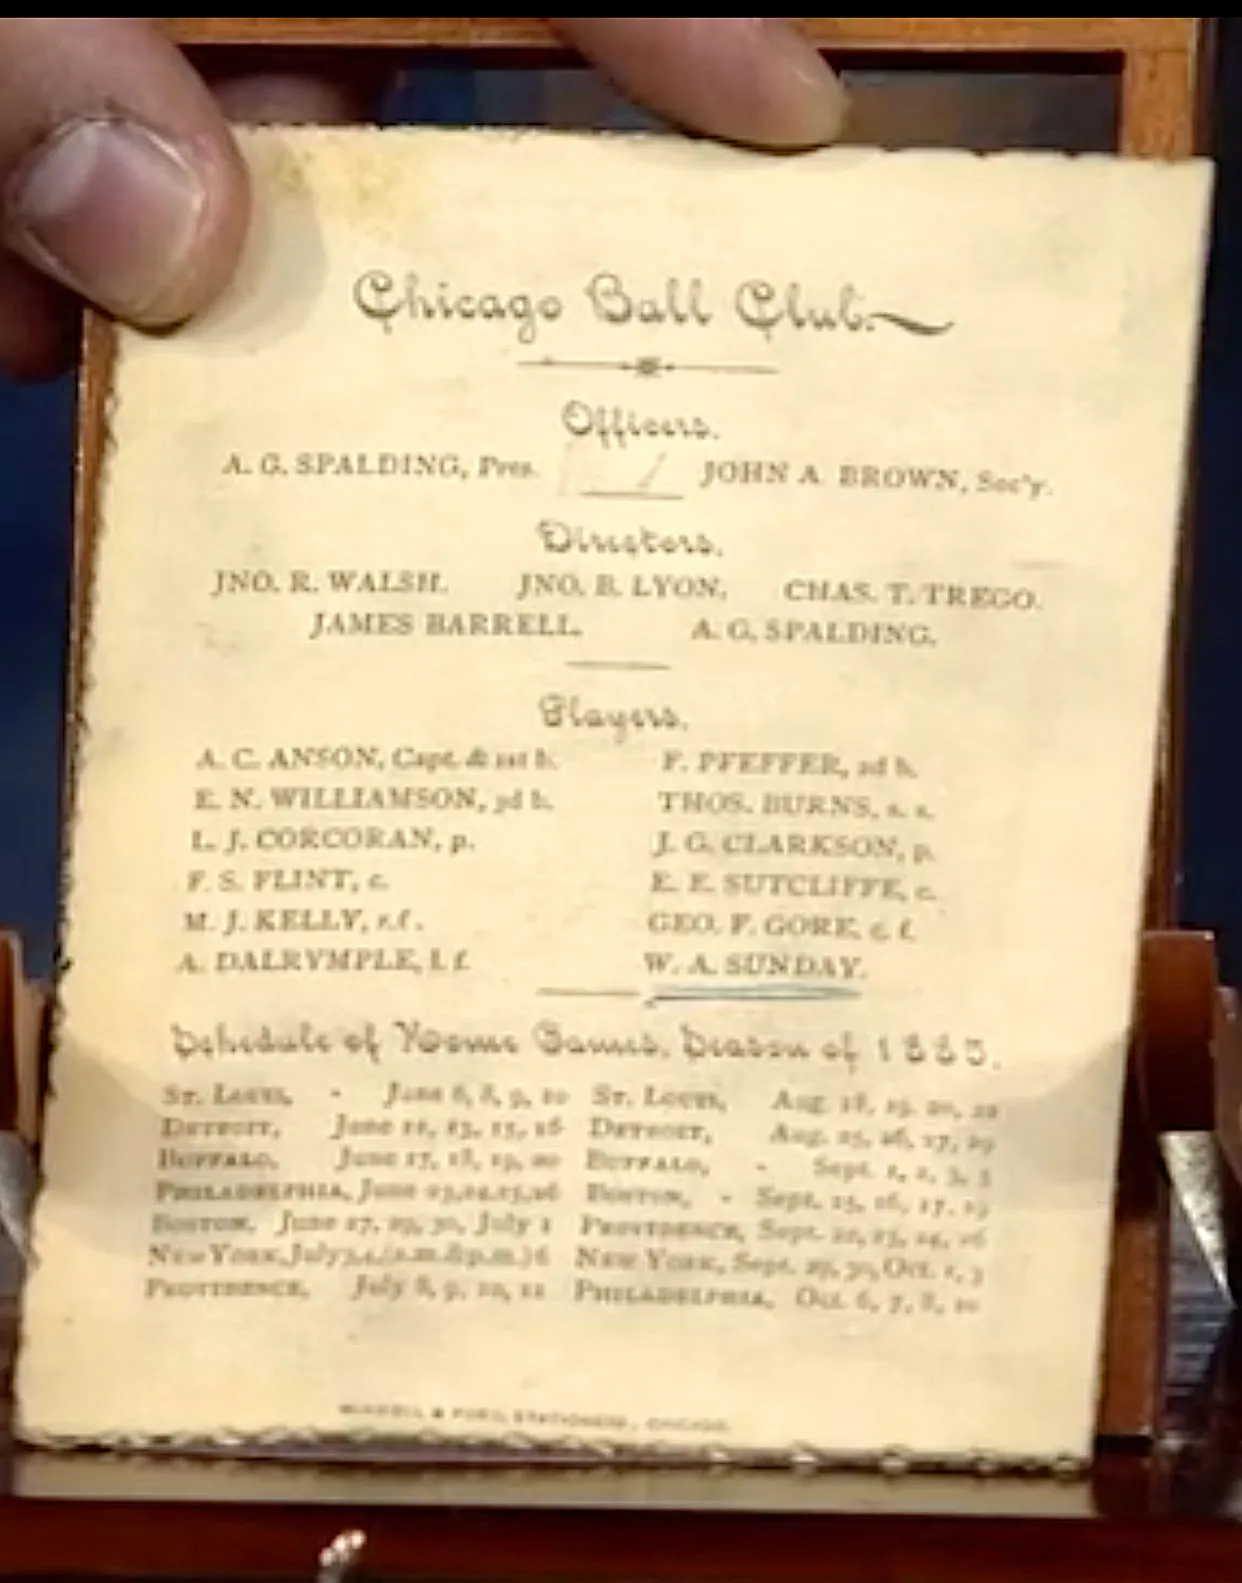 Chicago Ball Club.
Officers.
A. G. SPALDING, Pres. JOHN A. BROWN, Sec'y.
Directors.
JNO. R. WALSH. JNO. B. LYON. CHAS. T. TREGO.
JAMES BARRELL. A. G. SPALDING.
Players.
A. C. ANSON, Capt. & 1st b. F. PFEFFER, 2d b.
E. N. WILLIAMSON, 3d b. THOS. BURNS, s. s.
L. J. CORCORAN, p. J. G. CLARKSON, p.
F. S. FLINT, c. E. E. SUTCLIFFE, c.
M. J. KELLY, r. f. GEO. F. GORE, c. f.
A. DALRYMPLE, l. f. W. A. SUNDAY.
Schedule of Home Games, Season of 1885.
ST. LOUIS, - June 6, 8, 9, 10 ST. LOUIS, Aug. 18, 19, 20, 22
DETROIT, June 12, 13, 15, 16 DETROIT, Aug. 25, 26, 27, 29
BUFFALO, June 17, 18, 19, 20 BUFFALO, - Sept. 1, 2, 3, 5
PHILADELPHIA, June 23, 24, 25, 26 BOSTON, - Sept. 15, 16, 17, 19
BOSTON, June 27, 29, 30, July 1 PROVIDENCE, Sept. 22, 23, 24, 26
NEW YORK, July 3, 4, (a.m. & p.m.) 6 NEW YORK, Sept. 29, 30, Oct. 1, 3
PROVIDENCE, July 8, 9, 10, 11 PHILADELPHIA, Oct. 6, 7, 8, 10
& FORD, STATIONERS, CHICAGO.